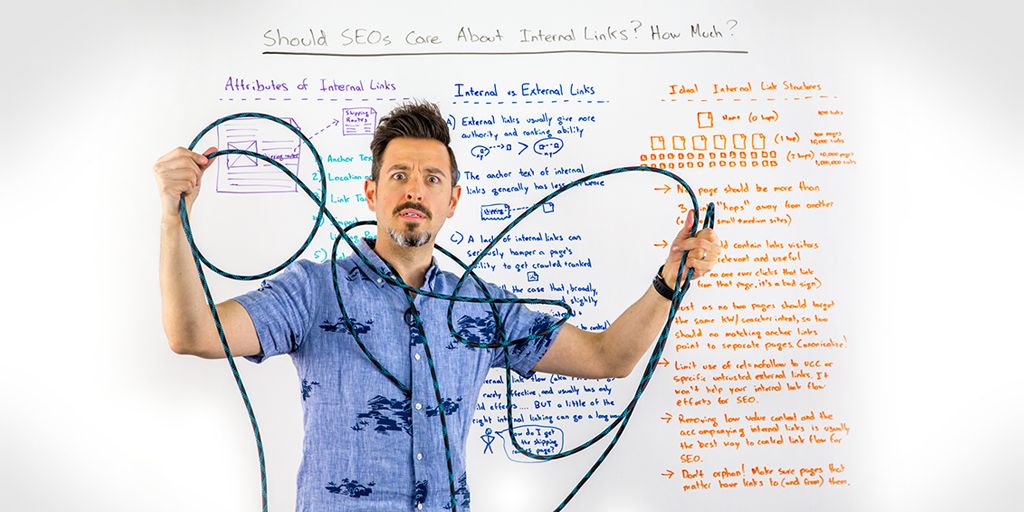 Should SEOs Care About Internal Links? How Much?
Attributes of Internal Links
Shipping
Routes
Anchor Text
2) Location
Link
5)
Internal vs External Links
A) External links usually give more
authority and ranking ability
>
The anchor text of internal
links generally has less
C) A lack of internal links can
seriously hamper a page's
ability to get crawled + ranked
the case that, broadly,
slightly
internal link flow (aka
rarely effective, and usually has only
BUT a little of the
right internal linking can go a long
How do I get
to the shipping
routes page?
Ideal Internal Link Structures
Home (0 hops)
100 links
(1 hop)
100 pages
10,000 links
(2 hops)
10,000 pages
1,000,000 links
→ No page should be more than
3 "hops" away from another
small + medium sites)
→ contain links visitors
relevant and useful
no one ever clicks that link
from that page, it's a bad sign)
Just as no two pages should target
the same KW/searcher intent, so too
should no matching anchor links
point to separate pages. Canonicalize!
→ Limit use of rel=nofollow to UGC or
specific untrusted external links. It
won't help your internal link flow
efforts for SEO.
→ Removing low value content and the
accompanying internal links is usually
the best way to control link flow for
SEO.
→ Don't orphan! Make sure pages that
matter have links to (and from) them.